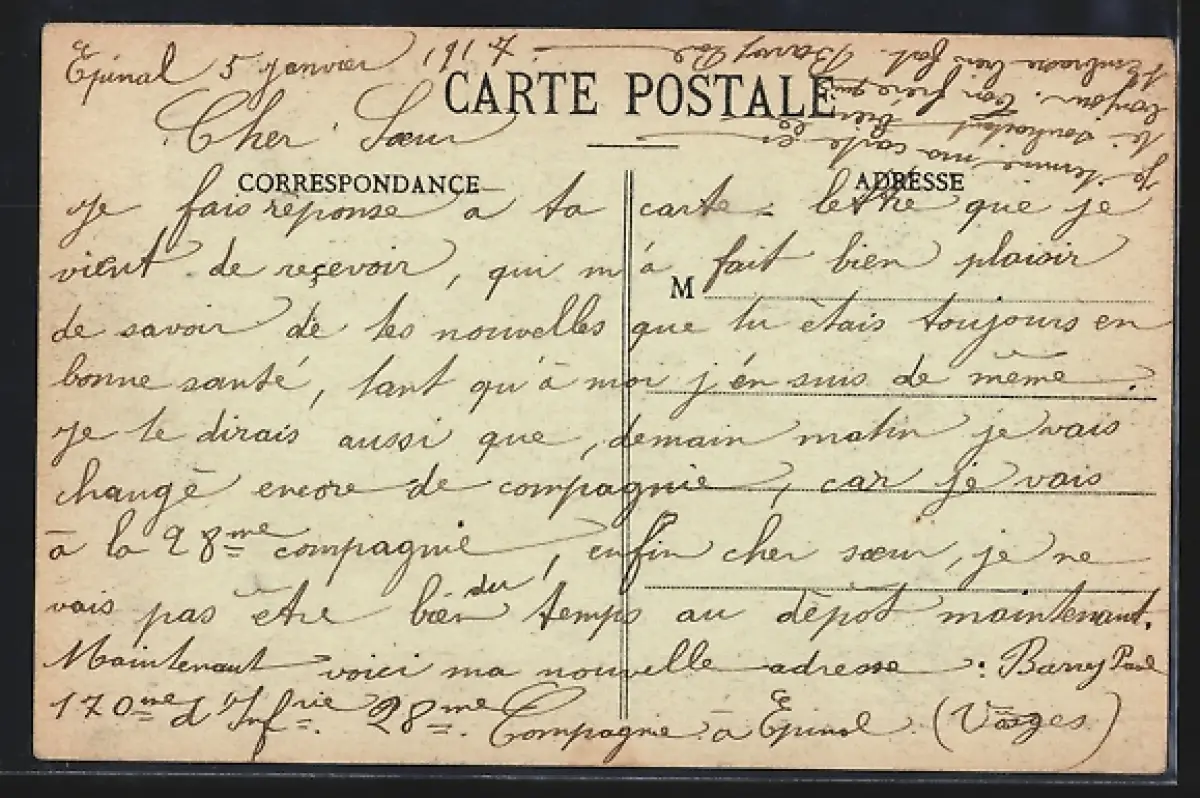 Epinal 5 Janvier 1917
CARTE POSTALE
Cher Sœur
CORRESPONDANCE
ADRESSE
Je fais réponse a ta carte-lettre que je
vient de reçevoir, qui m'à fait bien plaisir
M
de savoir de tes nouvelles que tu étais toujours en
bonne santé, tant qu'à moi j'én suis de même.
Je te dirais aussi que, demain matin je vais
changé encore de compagnie, car je vais
à la 28me compagnie, enfin cher sœur, je ne
vais pas être bien du temps au dépot maintenant.
Maintenant voici ma nouvelle adresse : Barrey Paul
170me d'Infrie. 28me. Compagnie à Epinal (Vosges)
Je termine ma carte en
te souhaitant bien le
bonjour. Ton frère qui
t'embrasse bien fort. Barrey Paul